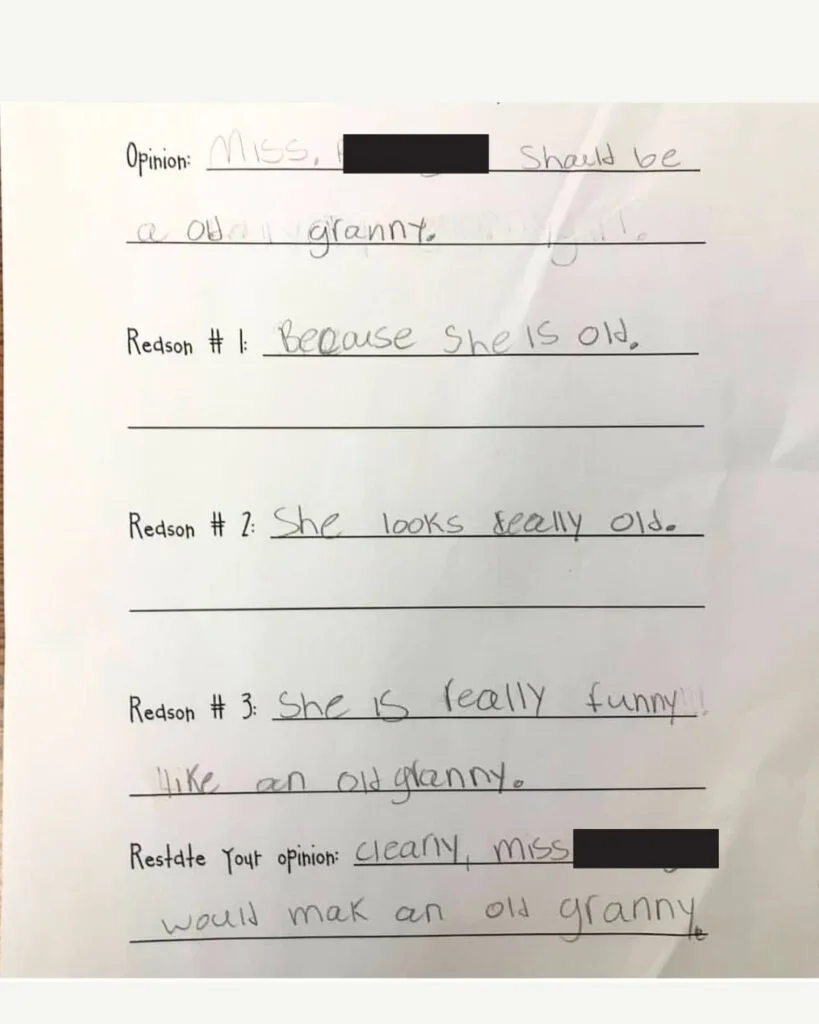 Opinion: Miss. Should be
a old granny.
Reason # 1: Because She IS old.
Reason # 2: She looks really old.
Reason # 3: She is really funny!!
like an old granny.
Restate Your opinion: clearly, miss
would mak an old granny.